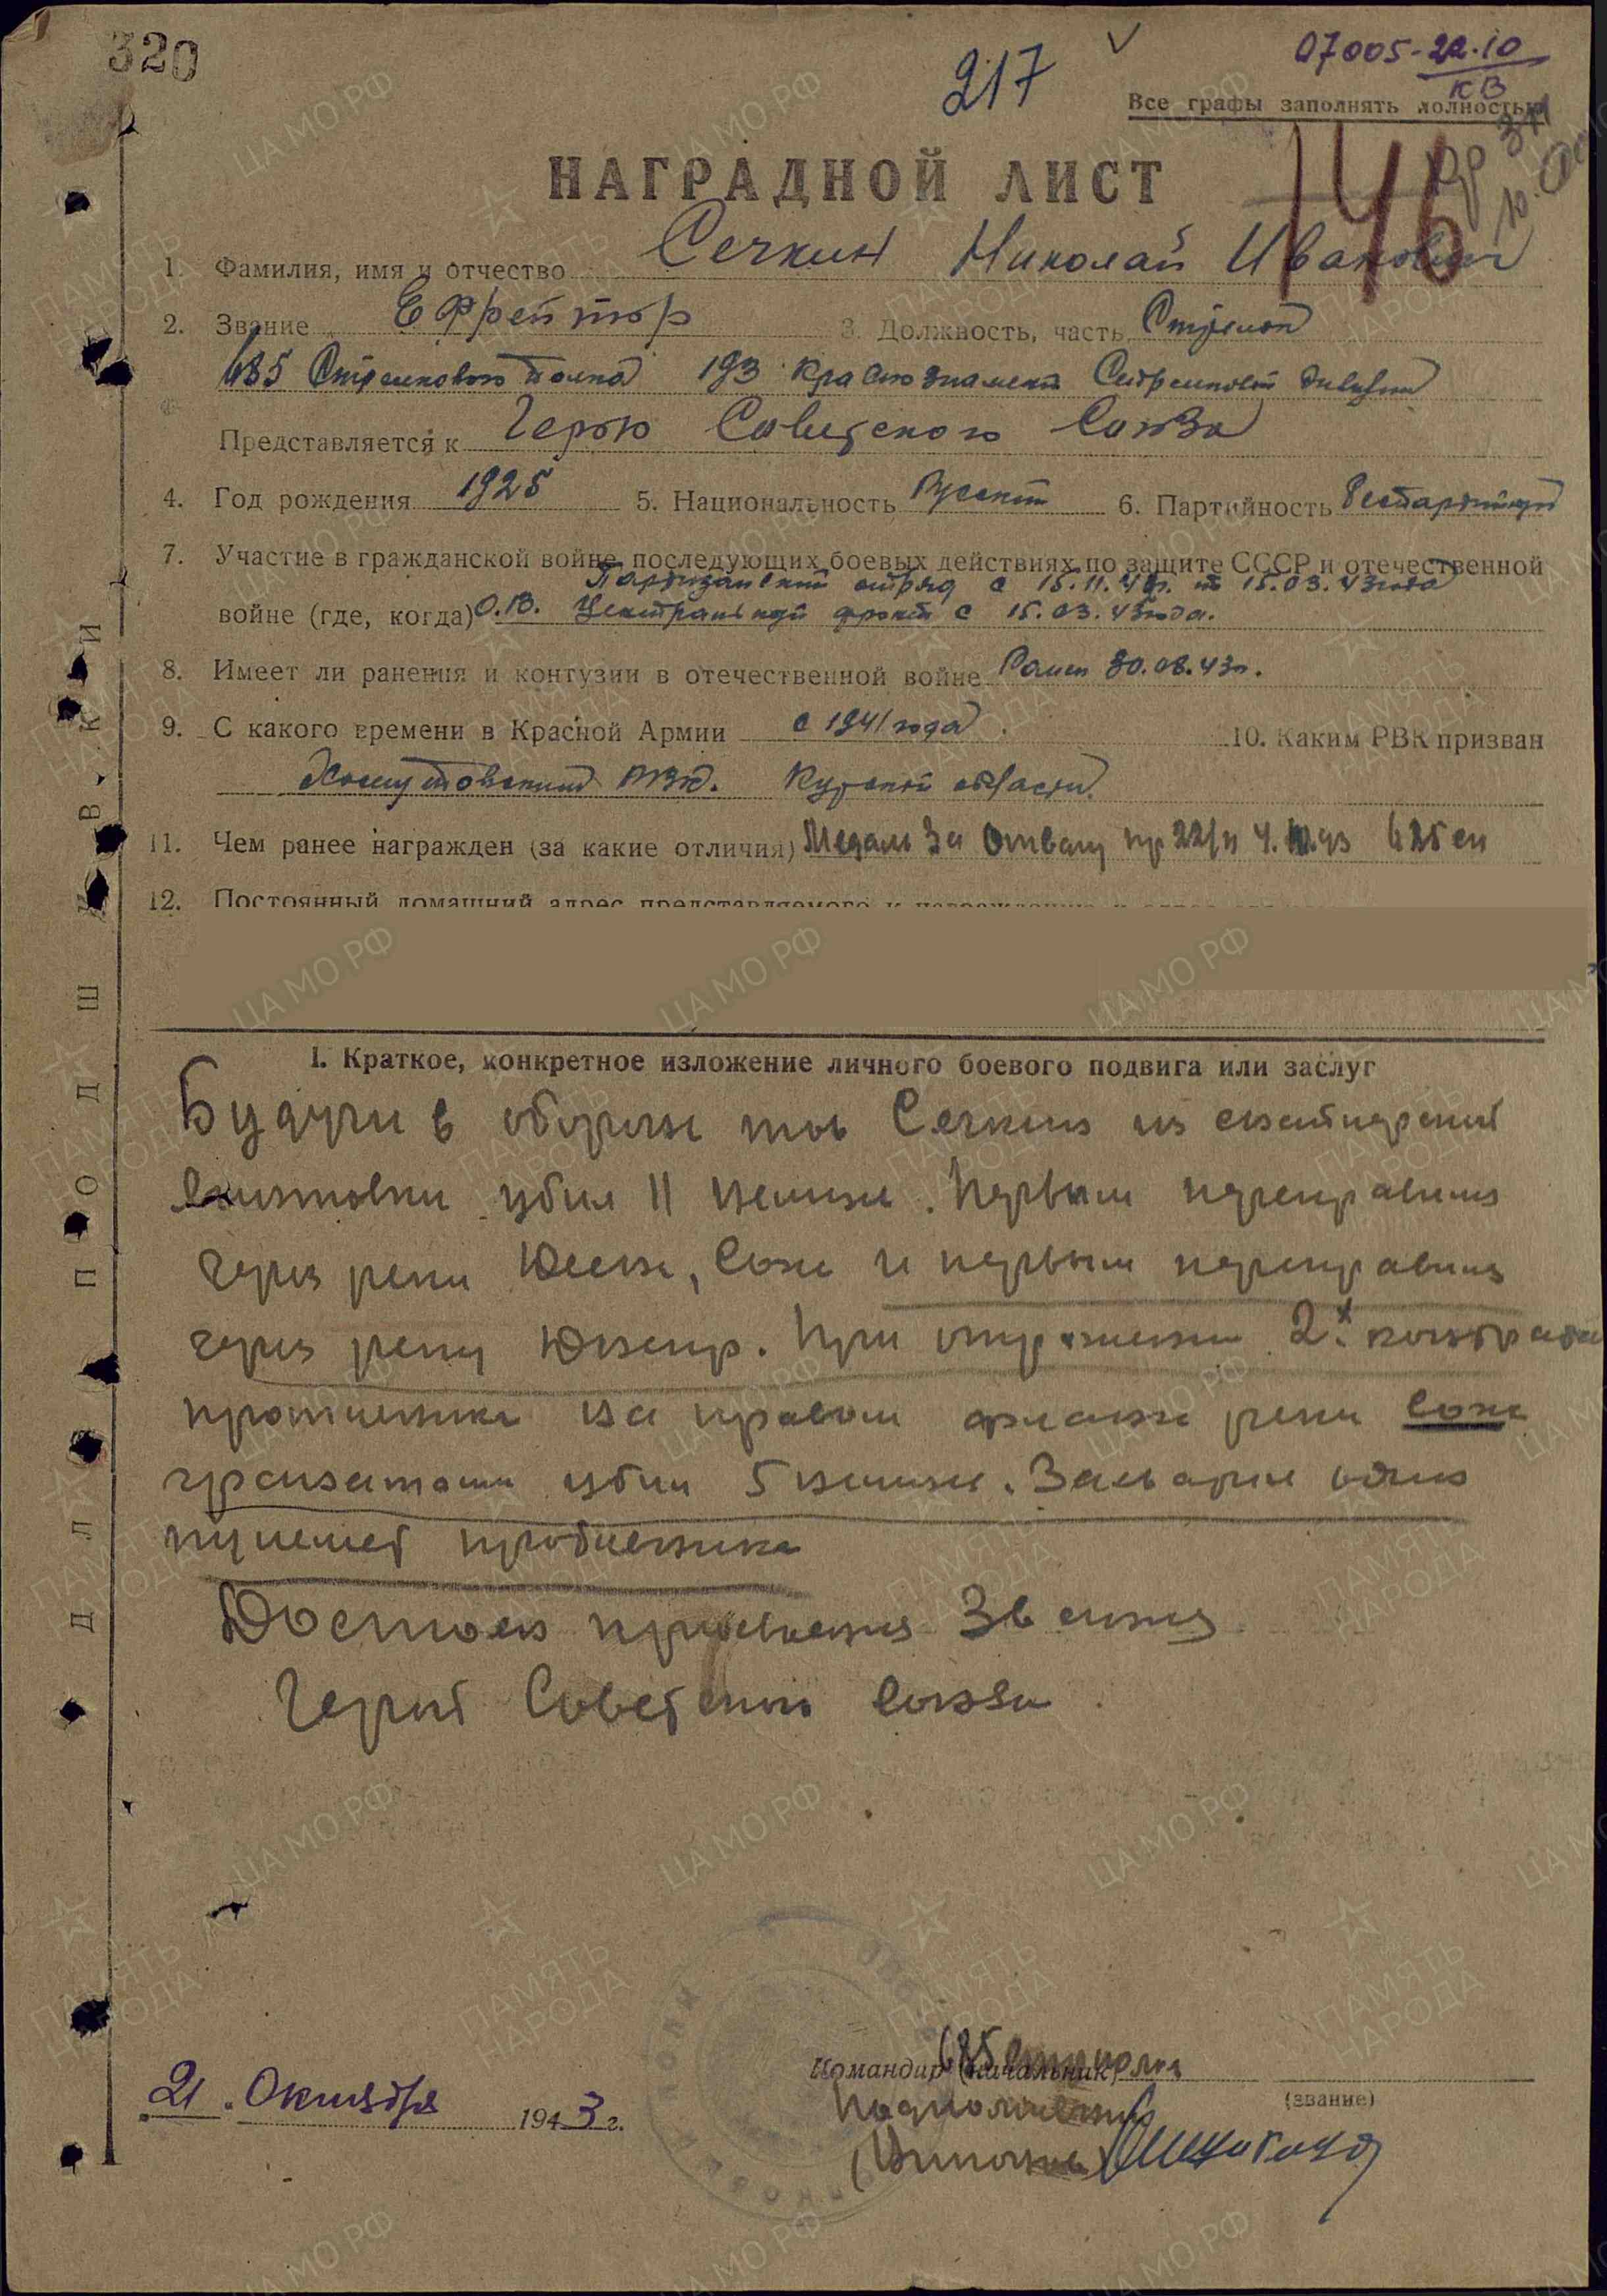 320
217
07005-22.10
КВ
Все графы заполнять полностью
146
НАГРАДНОЙ ЛИСТ
1. Фамилия, имя и отчество Сечкин Николай Иванович
2. Звание Ефрейтор 3. Должность, часть Стрелок
685 Стрелкового полка 193 Краснознамен Стрелковой дивизии
Представляется к Герою Советского Союза
4. Год рождения 1925 5. Национальность Русский 6. Партийность Беспартийный
7. Участие в гражданской войне, последующих боевых действиях по защите СССР и отечественной
Партизанский отряд с 15.11.41г. по 15.03.43года
войне (где, когда) О.В. Центральный фронт с 15.03.43года.
8. Имеет ли ранения и контузии в отечественной войне Ранен 30.08.43г.
9. С какого времени в Красной Армии с 1941 года 10. Каким РВК призван
Хомутовским РВК. Курской области.
11. Чем ранее награжден (за какие отличия) Медаль За Отвагу пр 22/н 4.10.43 685 сп
12. Постоянный домашний адрес представляемого к награждению и адрес
ДЛЯ ПОДШИВКИ
I. Краткое, конкретное изложение личного боевого подвига или заслуг
Будучи в обороне тов Сечкин из снайперской
винтовки убил 11 немцев. Первым переправился
через реки Десна, Сож и первым переправился
через реку Днепр. При отражении 2х контратак
противника на правом фланге реки Сож
гранатами убил 5 немцев. Захватил один
пулемет противника
Достоин присвоения Звания
Герой Советского Союза
21 Октября 1943 г.
Командир (начальник) 685 стр полка
(звание)
Подполковник